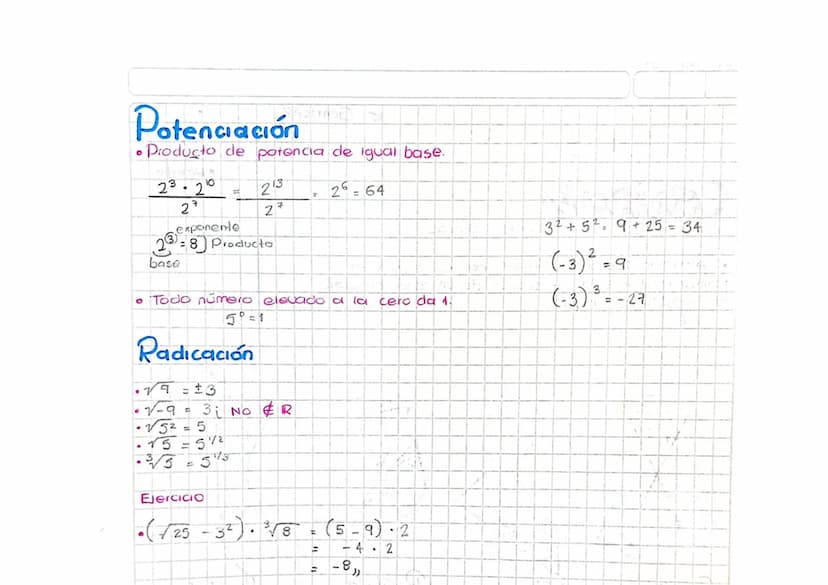 Potenciación
• Producto de potencia de igual base.
2³ · 2¹⁰ / 2⁷ = 2¹³ / 2⁷ = 2⁶ = 64
exponente
2³ = 8] Producto
base
3² + 5² = 9 + 25 = 34
(-3)² = 9
(-3)³ = -27
• Todo número elevado a la cero da 1.
5⁰ = 1
Radicación
• √9 = ±3
• √-9 = 3i NO ∉ ℝ
• √5² = 5
• √5 = 5^1/2
• ³√5 = 5^1/3
Ejercicio
• (√25 - 3²) · ³√8 = (5 - 9) · 2
= -4 · 2
= -8,,